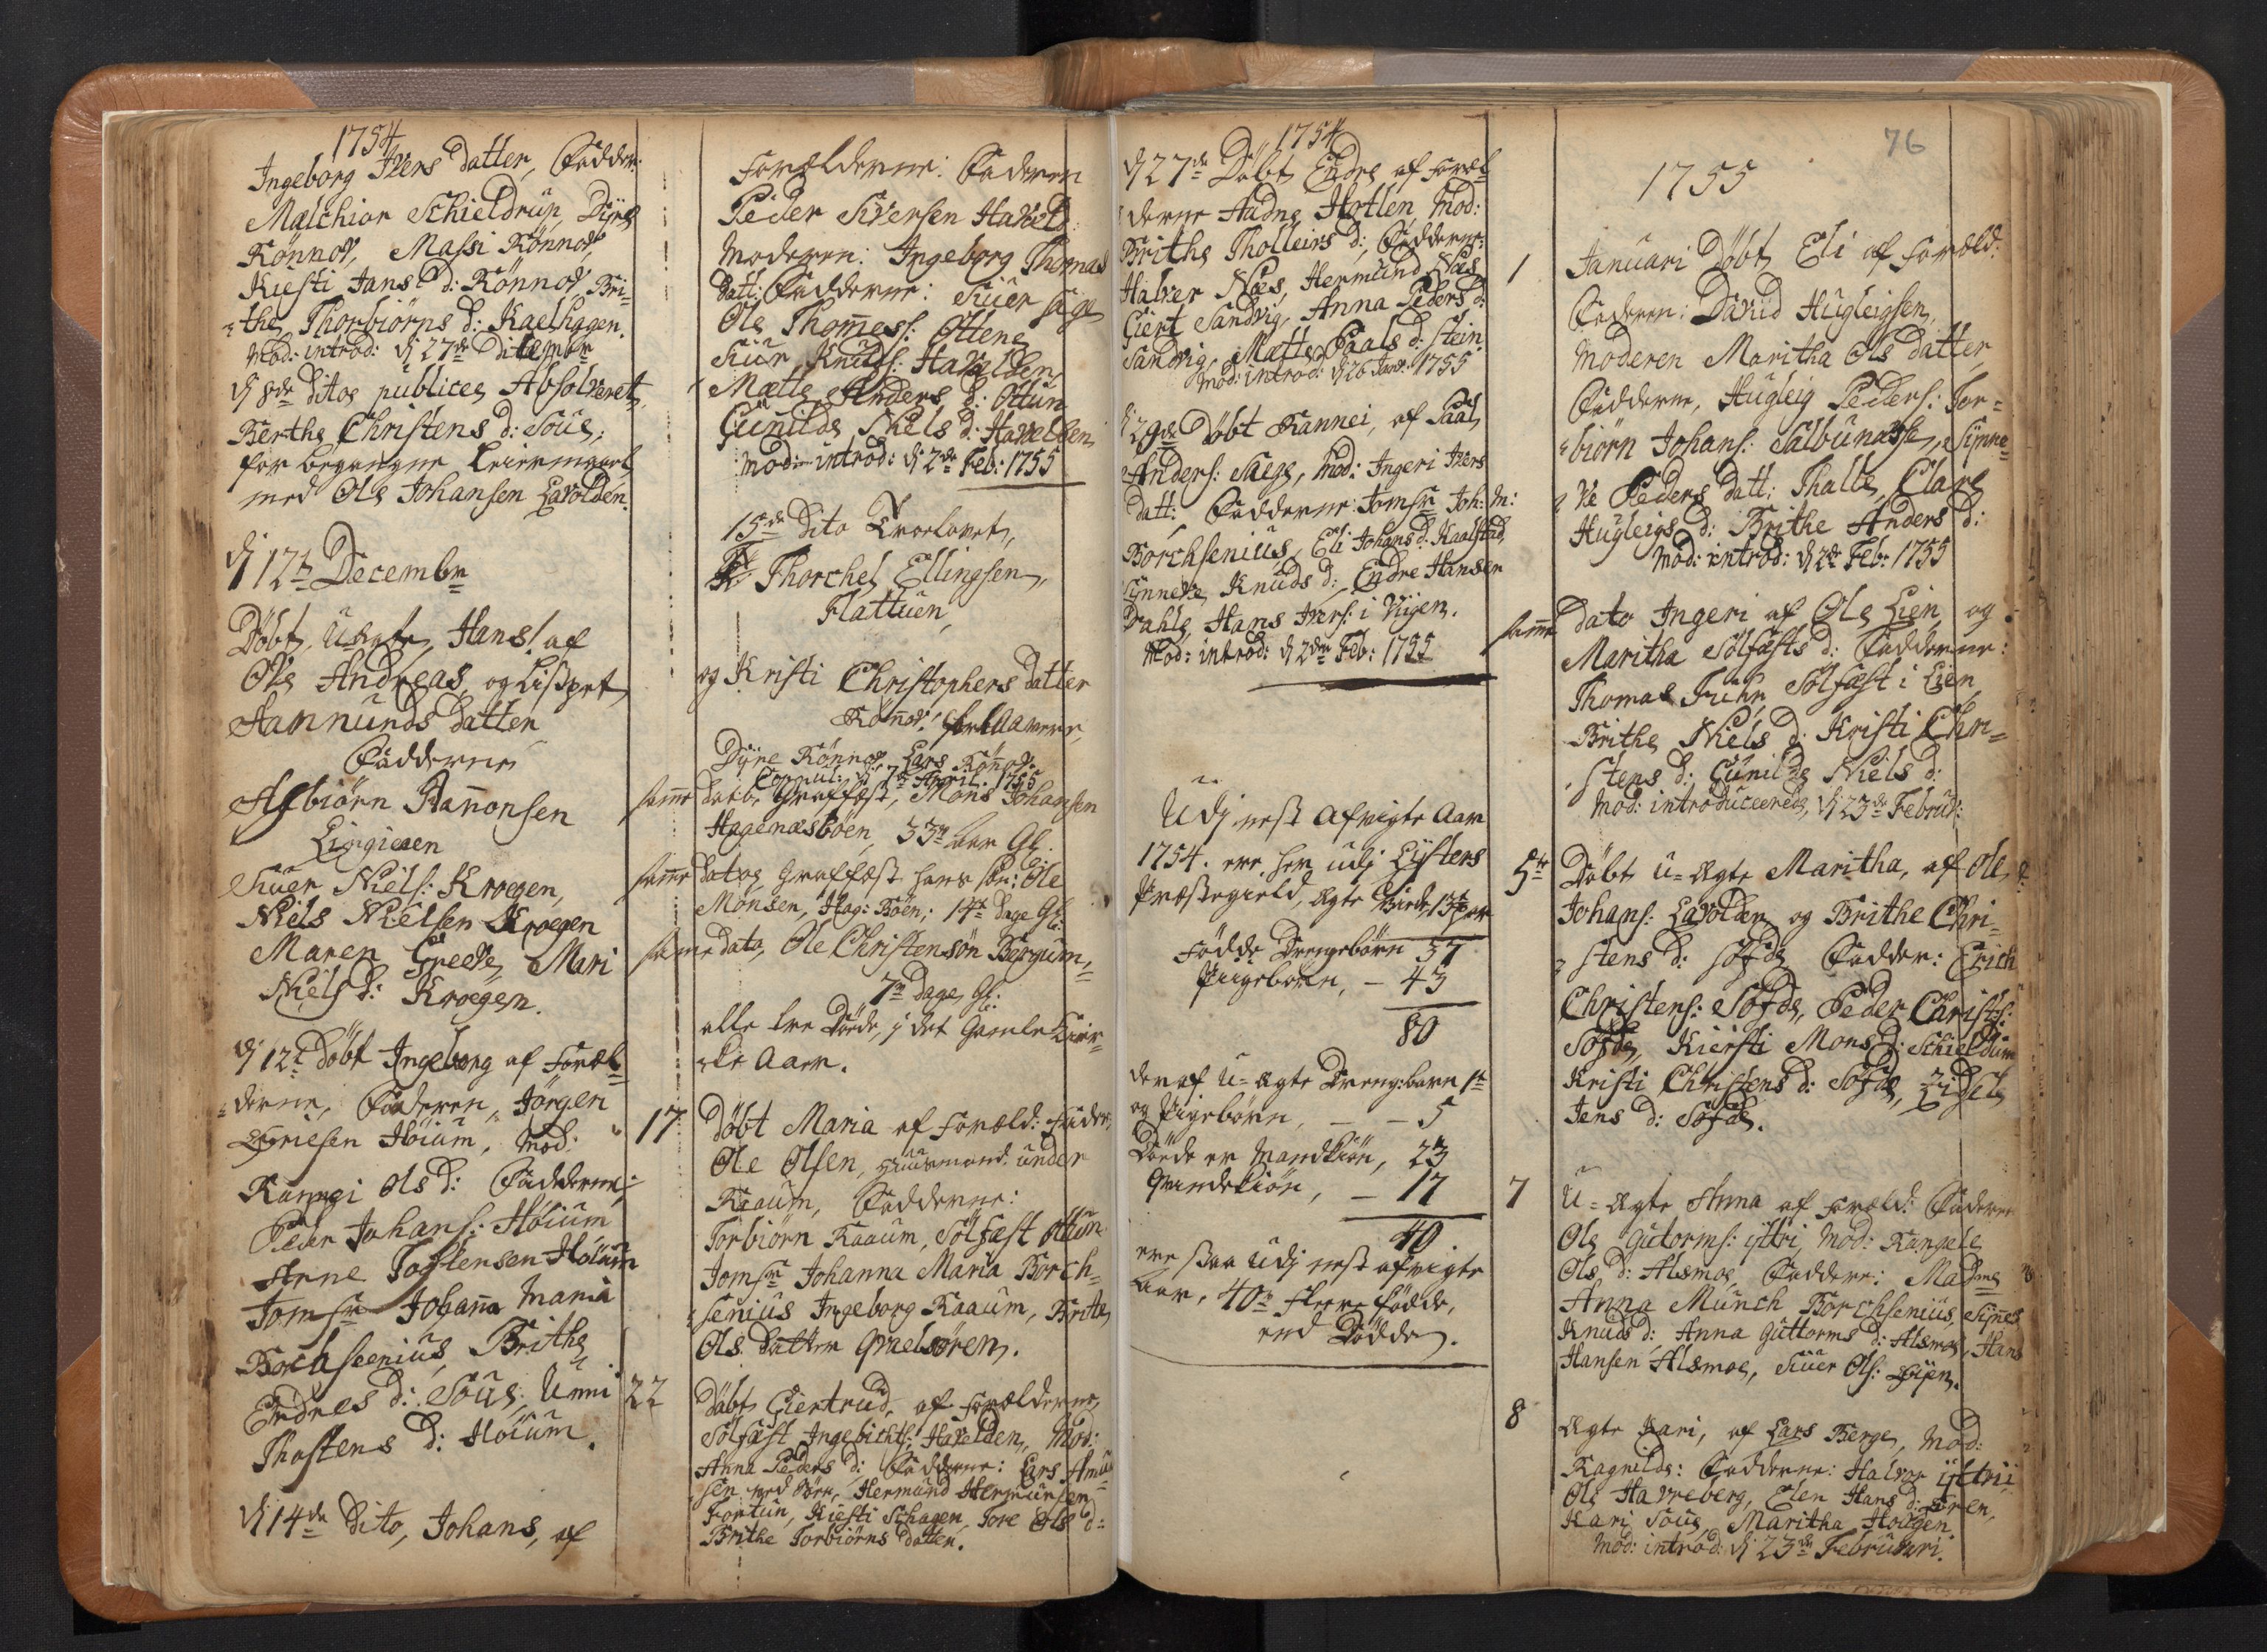 1754
Ingeborg Iters datter, Fadder:
Mælchior Schieldrup, Dyre
Rönnov, Massi Rönnov,
Kiesti Jans d: Rönnov, Bri-
the Thorbiörns d: Kaelhagen.
Mod: introd: d 27de Ditembr
d 8de Ditoe publice Absolveret
Berthe Christens d: Soue,
for begangne Leiermaal
med Ole Johansen Lavolden.
d 12te Decembr
Döbt, uægte Hans! af
Ole Andreas og Lisbet
Aamunds datter
Fadderne
Asbiörn Hanonsen
Siuer Niels: Kroegen,
Niels Nielsen Kroegen
Maren Greeve, Mari
Niels d: Kroegen.
d 12te Döbt Ingeborg af Foræl-
derne, Faderen, Jörgen
Höium, Mod:
Rannei Ols d: Fadderne:
Peder Johans: Höium
Anne Tostensen Höium
Jomfr Johana Maria
Borchsenius, Brithe
Endres d: Soue, Unni
Thostens d: Höium.
d 14de Dito, Johans, af
Forælderne: Faderen
Peder Siversen Haveld
Moderen: Ingeborg Thomas
datt: Fadderne: Siuer
Ole Thommess: Ottene
Siur Knuds: Havelden
Mætte Anders d: Ottun
Gunilde Niels d: Havelden
Mod: introd: d 2de Feb: 1755
15de Dito Trolovet,
Thorchel Ellingsen,
Flattuen,
og Kristi Christophers datter
Rönnov!
Dyre Rönnov, Lars Rönnov.
Copul: d 7de April: 1755
samme dato Grafæst, Mons Johansen
Hagenæsböen, 33te Aar Gl.
samme dato Grafæst hans sön: Ole
Monsen, Hag: Böen, 14te Dage Gl:
samme dato, Ole Christensön Bergum,
7te Dage Gl:
alle tre döde, i det Gamle Kir-
cke Aar.
17 Döbt Maria af Foræld: Fader,
Ole Olsen, Huusmand under
Kroaum, Fadderne:
Torbiörn Kroaum, Sölfæst Ottun
Jomfr Johanna Maria Borch-
senius Ingeborg Kroaum, Brite
Ols datter Qvaelsören.
22 Döbt Giertrud, af Forælderne,
Sölfæst Ingebricts: Havelden, Mod:
Anna Peders d: Fadderne: Lars Amu-
sen ved Hermund Hermunsen
Fortun, Kiesti Schagen, Tore Ols d:
Brithe Torbiörns datter.
1754
d 27de Döbt Endre af Foræl-
derne Aadne Hotlen, Mod:
Brithe Tholleirs d: Fadderne:
Halver Næs, Hermund Næs
Giert Sandvig, Anna Peders d:
Sandvig, Matte Paals d: Stein
Mod: introd: d 26 Janr: 1755
d 29de Döbt Rannei, af Paal
Anders: Saege, Mod: Ingeri Iters
datt: Fadderne: Jomfr Joh: M:
Borchsenius, Eli Johans d: Kaalstad,
Synneve Knuds d: Endre Hansen
Dahle, Hans Iters: i Viigen.
Mod: introd: d 2den Feb: 1755
Udj nest afvigte Aar
1754. ere her udj Lysters
Præstegield, ægte Viede, 13te par
Födde Drengebörn 37
Pigebörn, – 43
80
deraf U-ægte Drengebarn 1t
og Pigebörn, – – 5
Döde er Mandkiön, 23
Qvindekiön, – 17
40
ere saa udj nest afvigte
Aar, 40te fleere födde,
end Dödde.
76
1755
1 Januari Döbt Eli af Foræld:
Faderen: David Hugleigsen,
Moderen Maritha Ols datter,
Fadderne, Hugleig Peders: Tor-
biörn Johans: Sælbunasse, Synne-
ve Peders datt: Thalle, Clare
Hugleigs d: Brithe Anders d:
Mod: introd: d 2de Feb: 1755
samme dato Ingeri af Ole Lien og
Maritha Sölfæsts d: Fadderne:
Thomas Fuhr, Sölfæst i Lien
Brithe Niels d: Kristi Chri-
stens d: Gunilde Niels d:
Mod: introduceerede, d 23de Februr:
5te Döbt u-ægte Maritha, af Ole
Johans: Lavolden og Brithe Chri-
stens d: Söfde Fadder: Erich
Christens: Söfde, Peder Christs:
Söfde, Kiersti Mons d: Schieldum
Kristi Christens d: Söfde, Zidsele
Jens d: Söfde.
7 U-ægte Anna af Foræld: Faderen
Ole Gutorms: ijttri, Mod: Rangele
Ols d: Alsmoe, Faddere: Madme
Anna Munch Borchsenius, Synnev
Knuds d: Anna Guttorms d: Alsmoe, Hans
Hansen Alsmoe, Siuer Ols:
8 ægte Kari, af Lars Berge, Mod:
Ragnilde: Fadderne: Halvor ijttrii,
Ole Havreberg, Elen Hans d:
Kari Soue, Maritha Hougen.
Mod: introd: d 23de Februari.